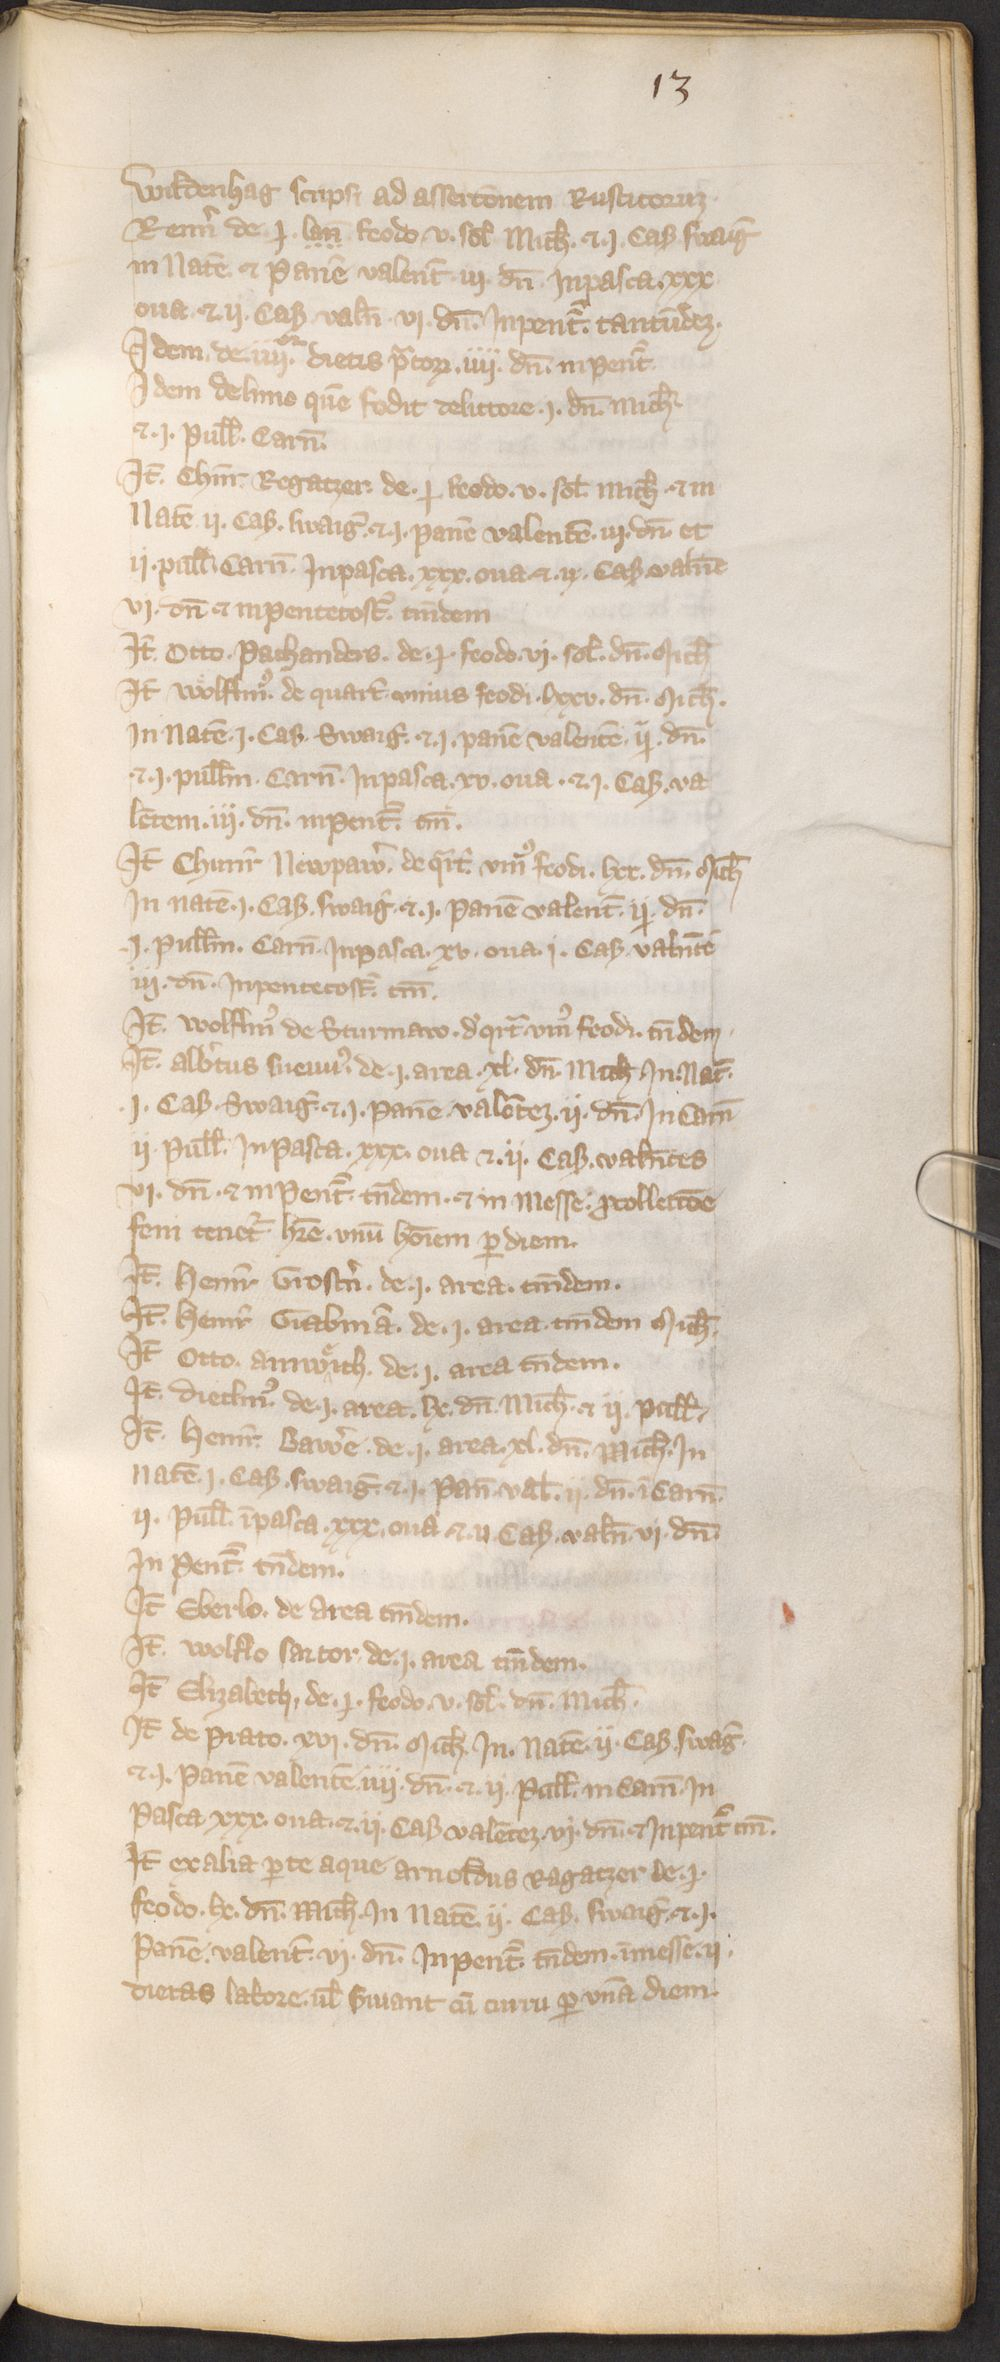 13
Wildenhag scripsi ad assertõnem Rusticoruz
Reinr̃ de .j. feodo .v. sol̃ Mich̃. & .j. Cas̃ swaig̃
in Natẽ & Panẽ valent̃ .iij. dñ. Inpasca .xxx.
oua .&. ij. Cas̃ valñ .vi. dñ. Inpent̃. tantũdez.
Idem de .iiij.or dietis p̃torꝝ .iiij. dñ. inPent̃
Idem de limo quẽ fodit de littore .j. dñ. Mich̃.
&. j. Pull̃. Carñ.
It̃. Chunr̃ Regatzer. de .j. feodo .v. sol̃ Mich̃. & in
Natẽ .ij. Cas̃. swaig̃. &. j. panẽ valentẽ .iij. dñ. et
ij. pull̃. Carñ. Inpasca .xxx. oua .&. ij. Cas̃. valñt
vi. dñ & inPentecost̃. tm̃dem
It̃. Otto. Pachanders. de .j. feodo .vi. sol̃. dñ. Mich̃
It̃ wolflinꝰ. de quart̃ unius feodi .lxxv. dñ. Mich̃.
In Natẽ .j. Cas̃. Swaig̃. &. j. panẽ valentẽ .ij. dñ.
.&. j. pull̃m. Carñ. Inpasca .xv. oua .&. j. Cas̃. va
lẽtem .iij. dñ. inPent̃. tm̃.
It̃ Chunr̃ Newpawr̃. de q̃rt̃. vniꝰ feodi. lxx. dñ. Mich̃
In natẽ .j. Cas̃. swaig̃. &. j. Panẽ valent̃ .ij. dñ.
.j. Pull̃m. Carñ. Inpasca .xv. oua .i. Cas̃. valñtẽ
iij. dñ. Inpentecost̃. tm̃.
It̃. wolflinꝰ de Sturmaw. d̉ q̃rt̃ vniꝰ feodi. tñdem.
It̃. alb̃tus sueuuꝰ. de .j. area .xl. dñ. Mich̃. In. Nat̃.
.j. Cas̃. Swaig̃. &. j. Panẽ. valẽtez .ij. dñ. In Carñ
ij. Pull̃. InPasca .xxx. oua &. ij. Cas̃. valñtes
vi. dñ. & inPent̃. tñdem. & in Messe. & collectõe
feni tenet̃. hr̃e. vnũ hõiem ꝑ diem.
It̃. Heinr̃ Grostñ. de .j. area. tm̃dem.
It̃. Heinr̃ de .j. area tm̃dem Mich̃.
It̃ Otto. de .j. area tñdem.
It̃. dietlinꝰ. de .j. area .lx. dñ. Mich̃. & ij. Pull̃.
It̃. Heinr̃. Bawr̃e. de .j. area .xl. dñ. Mich̃. In
Natẽ .j. Cas̃. swaig̃. &. j. Pañ. val̃. ij. dñ. ĩ Carñ.
ij. Pull̃. ĩpasca .xxx. oua &. ij Cas̃. valñ. vi. dñ.
In Pent̃. tñdem.
It̃ Eberlo. de area tm̃dem.
It̃. wolflo sartor de .j. area tm̃dem.
It̃ Elizabeth, de .j. feodo .v. sol̃. dñ. Mich̃.
It̃ de Prato .xvi. dñ. Mich̃. In. Natẽ .ij. Cas̃. swag̃.
&. j. Panẽ valentẽ .iiij. dñ. &. ij. Pull̃. in Carñ. In
Pasca xxx. oua .&. ij. Cas̃ valẽtez .vi. dñ. & Inpent̃ tm̃.
It̃ ex alia ꝑte aque arnoldus Ragatzer de .j.
feodo .lx. dñ. Mich̃. In Natẽ .ij. Cas̃. swaig̃. &. j.
Panẽ. valent̃ .vi. dñ. Inpent̃. tñdem. ĩmesse .ij.
dietas labore. ul̃ s̃uiant cũ curru ꝑ vnã diem.